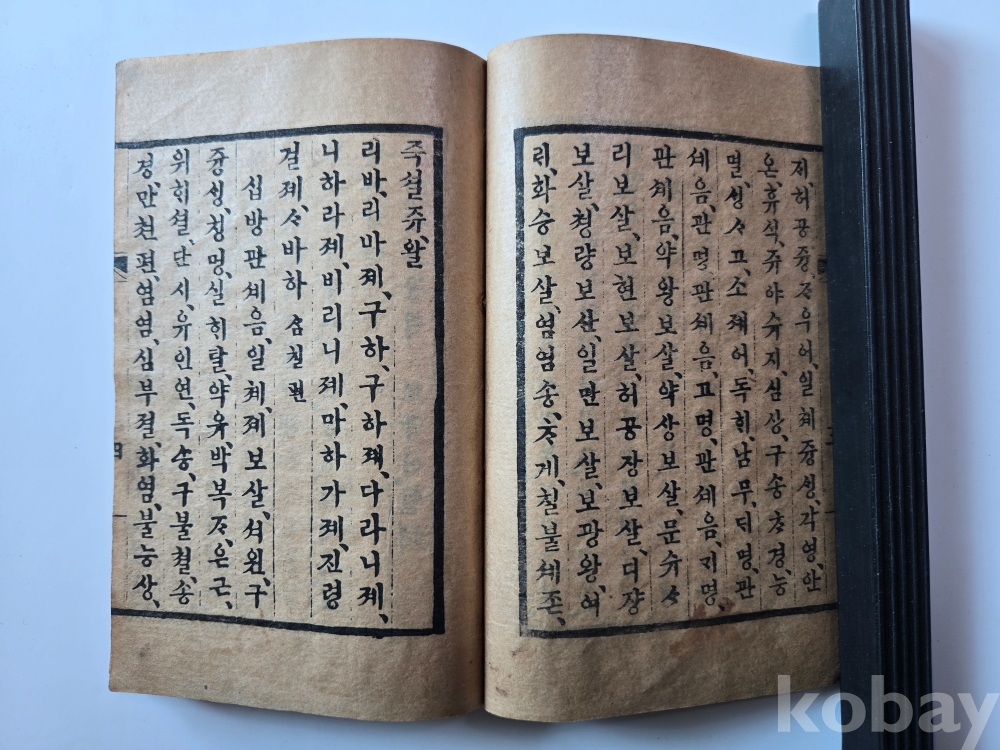 졔、허공즁、ㅈ、우어、일쳬즁셩、각영、안
온、휴식、쥬야슈지、심상、구송、ᄎ경、능
멸、셩ㅅ고、소졔어、독ᄒᆡ、남무、ᄃᆡ명、관
셰음、관명관셰음、고명、관셰음、ᄀᆡ명、
관셰음、약왕보살、약상보살、문슈ㅅ
리보살、보현보살、허공장보살、디쟝
보살、쳥량보산、일만보살、보광왕、여
ᄅᆡ、화승보살、염염송、ᄎ게、칠불셰존、
즉셜쥬、왈
리바、리마졔、구하、구하졔、다라니졔、
니하라졔、비리니졔、마하가졔、진령
결졔、ㅅ바하 삼칠편
십방관셰음、일쳬、졔보살、셔원、구
즁셩、칭명、실ᄒᆡ탈、약유、박복ᄌ、은근、
위ᄒᆡ셜、단시、유인연、독송、구불철、송
경、만쳔편、염염、심부졀、화염、불능상、
四
kobay